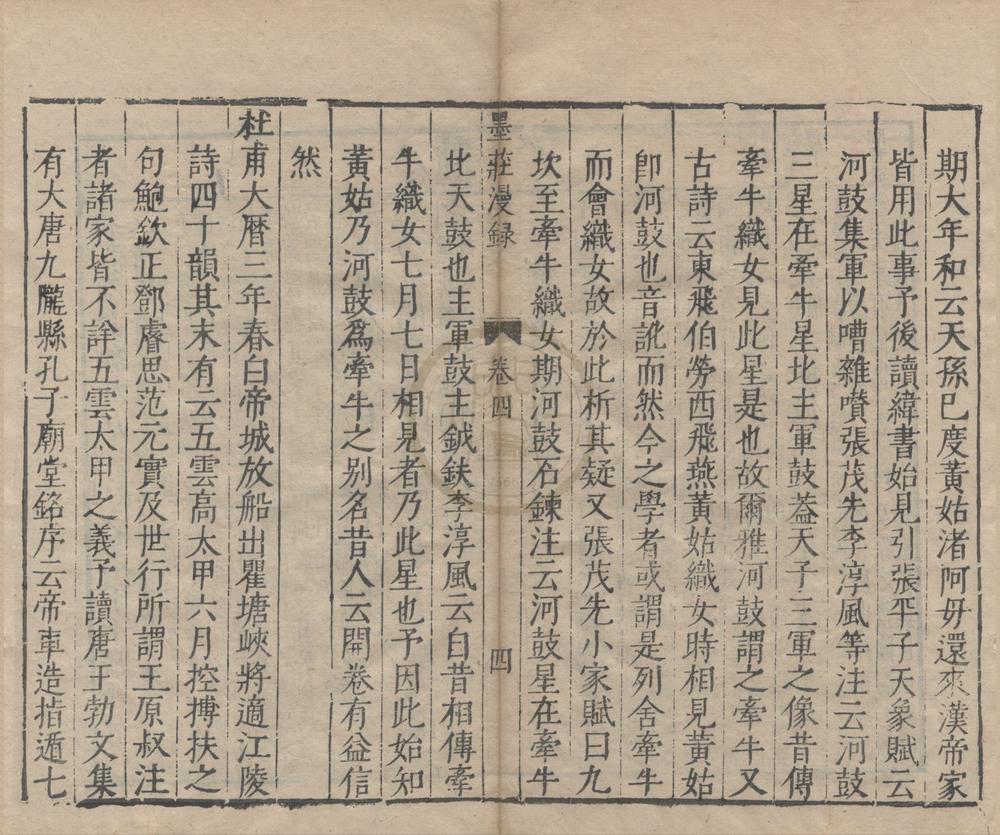 期大年和云天孫已度黃姑渚阿母還來漢帝家
皆用此事予後讀緯書始見引張平子天象賦云
河鼓集軍以嘈雜囋張茂先李淳風等注云河鼓
三星在牽牛星北主軍鼓葢天子三軍之像昔傳
牽牛織女見此星是也故爾雅河鼓謂之牽牛又
古詩云東飛伯勞西飛燕黃姑織女時相見黃姑
卽河鼓也音訛而然今之學者或謂是列舍牽牛
而會織女故於此析其疑又張茂先小家賦曰九
坎至牽牛織女期河鼓石鍊注云河鼓星在牽牛
墨莊漫録 卷四 四
北天鼓也主軍鼓主鉞鈇李淳風云自昔相傳牽
牛織女七月七日相見者乃此星也予因此始知
黃姑乃河鼓爲牽牛之别名昔人云開卷有益信
然
杜甫大曆三年春白帝城放船出瞿塘峽將適江陵
詩四十韻其末有云五雲高太甲六月控搏扶之
句鮑欽正鄧睿思范元實及世行所謂王原叔注
者諸家皆不詮五雲太甲之義予讀唐王勃文集
有大唐九隴縣孔子廟堂銘序云帝車造指遁七